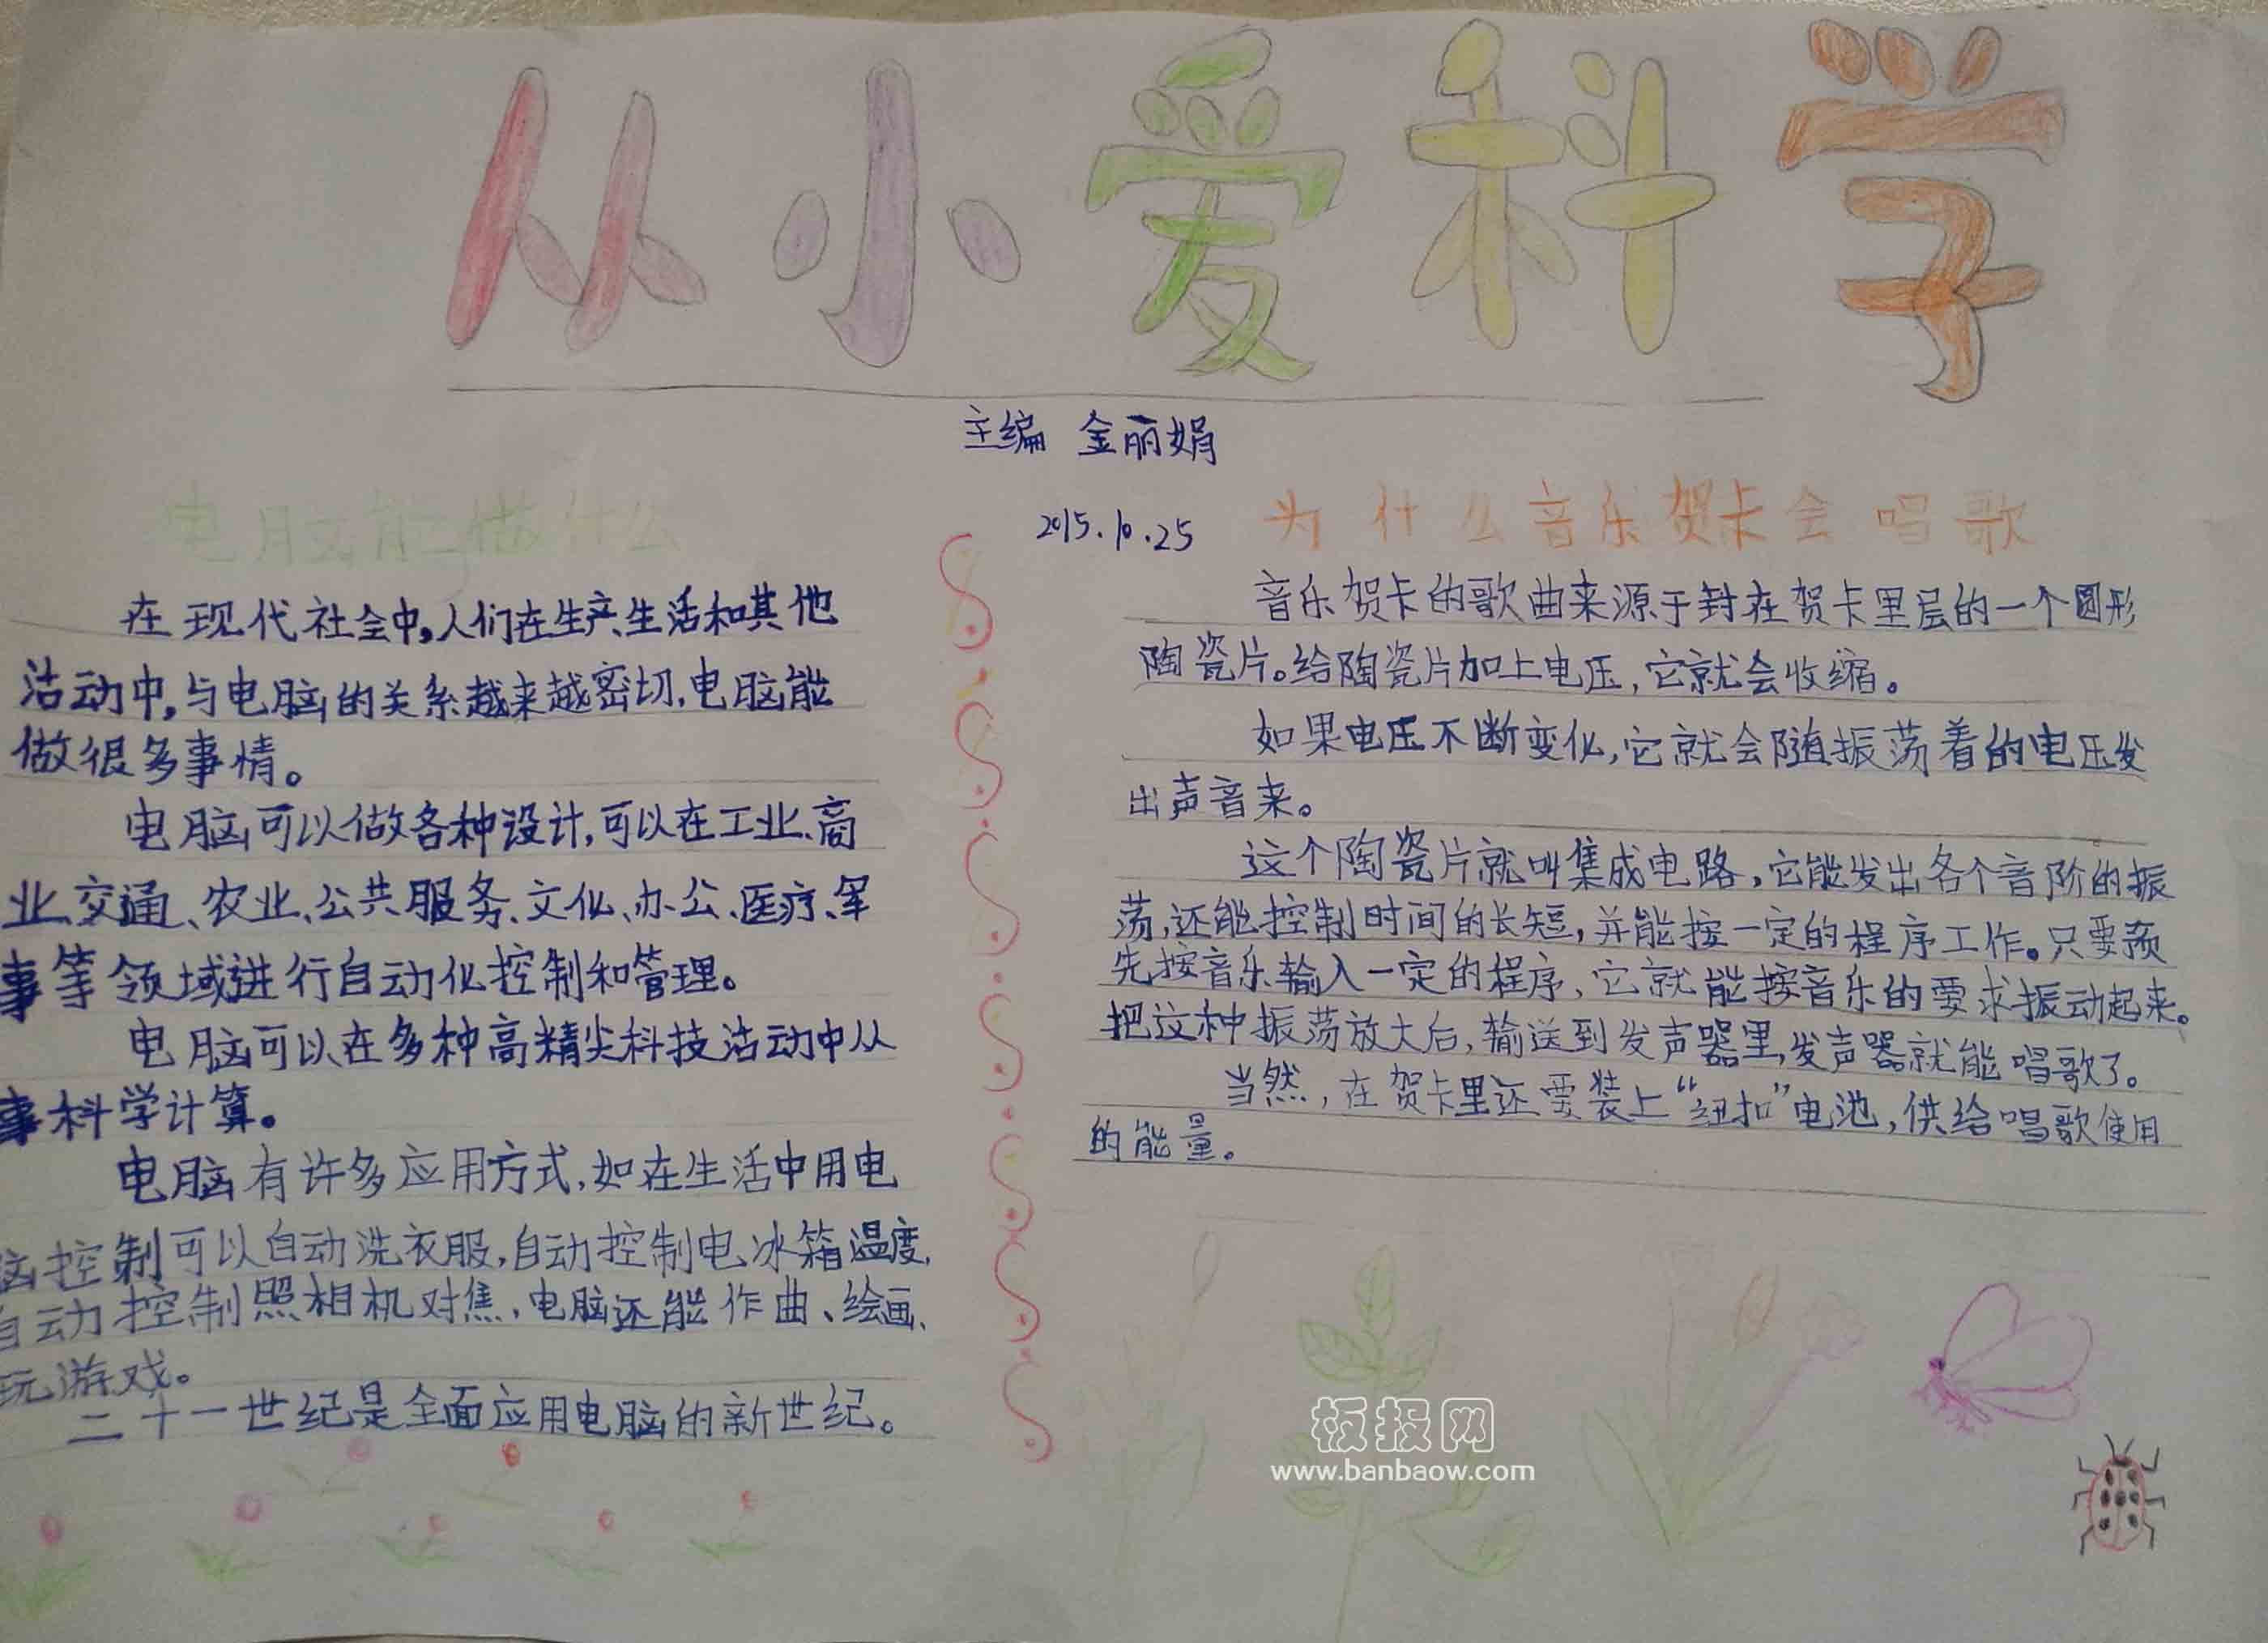 从小爱科学
主编 金丽娟
2015.10.25
电脑能做什么
在现代社会中,人们在生产、生活和其他
活动中,与电脑的关系越来越密切,电脑能
做很多事情。
电脑可以做各种设计,可以在工业、商
业、交通、农业、公共服务、文化、办公、医疗、军
事等领域进行自动化控制和管理。
电脑可以在多种高精尖科技活动中从
事科学计算。
电脑有许多应用方式,如在生活中用电
脑控制可以自动洗衣服,自动控制电冰箱温度,
自动控制照相机对焦,电脑还能作曲、绘画、
玩游戏。
二十一世纪是全面应用电脑的新世纪。
为什么音乐贺卡会唱歌
音乐贺卡的歌曲来源于封在贺卡里层的一个圆形
陶瓷片。给陶瓷片加上电压,它就会收缩。
如果电压不断变化,它就会随振荡着的电压发
出声音来。
这个陶瓷片就叫集成电路,它能发出各个音阶的振
荡,还能控制时间的长短,并能按一定的程序工作。只要预
先按音乐输入一定的程序,它就能按音乐的要求振动起来。
把这种振荡放大后,输送到发声器里,发声器就能唱歌了。
当然,在贺卡里还要装上“纽扣”电池,供给唱歌使用
的能量。
板报网
www.banbaow.com